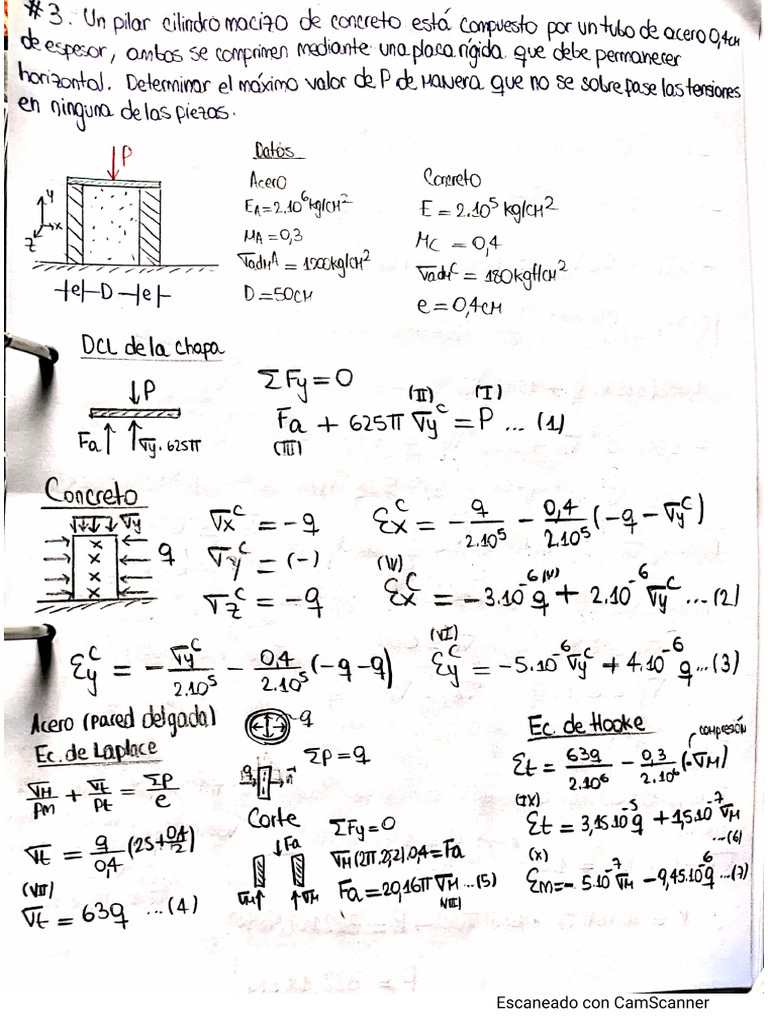 #3. Un pilar cilindro macizo de concreto está compuesto por un tubo de acero 0,4cm
de espesor, ambos se comprimen mediante una placa rígida que debe permanecer
horizontal. Determinar el máximo valor de P de manera que no se sobrepase las tensiones
en ninguna de las piezas.
P
y
x
z
e D e
Datos
Acero
EA=2.10⁶ kg/cm²
μA=0,3
σadmᴬ = 1200kg/cm²
D=50cm
Concreto
E = 2.10⁵ kg/cm²
μC = 0,4
σadmᶜ = 180kgf/cm²
e = 0,4cm
DCL de la chapa
P
Fa σy.625π
ΣFy=0
(II) (I)
Fa + 625π σyᶜ = P ... (1)
(III)
Concreto
σy
q
σxᶜ = -q
σyᶜ = (-)
σzᶜ = -q
εxᶜ = - q/2.10⁵ - 0,4/2.10⁵ (-q - σyᶜ)
(IV) (V)
εxᶜ = -3.10⁻⁶ q + 2.10⁻⁶ σyᶜ ... (2)
εyᶜ = - σyᶜ/2.10⁵ - 0,4/2.10⁵ (-q-q)
(VI)
εyᶜ = -5.10⁻⁶ σyᶜ + 4.10⁻⁶ q ...(3)
Acero (Pared delgada)
Ec. de Laplace
σM/ρm + σt/ρt = Σp/e
σt = q/0,4 (25+0,4/2)
(VII)
σt = 63q ...(4)
q
Σp = q
q n
Corte
Fa
σM σM
ΣFy=0
σM(2π.25,2).0,4=Fa
Fa=20,16π σM ...(5)
(VIII)
Ec. de Hooke
compresión
εt = 63q/2.10⁶ - 0,3/2.10⁶ (-σM)
(IX)
εt = 3,15.10⁻⁵ q + 1,5.10⁻⁷ σM
...(6)
(X)
εm=- 5.10⁻⁷ σM - 9,45.10⁻⁶ q ...(7)
Escaneado con CamScanner